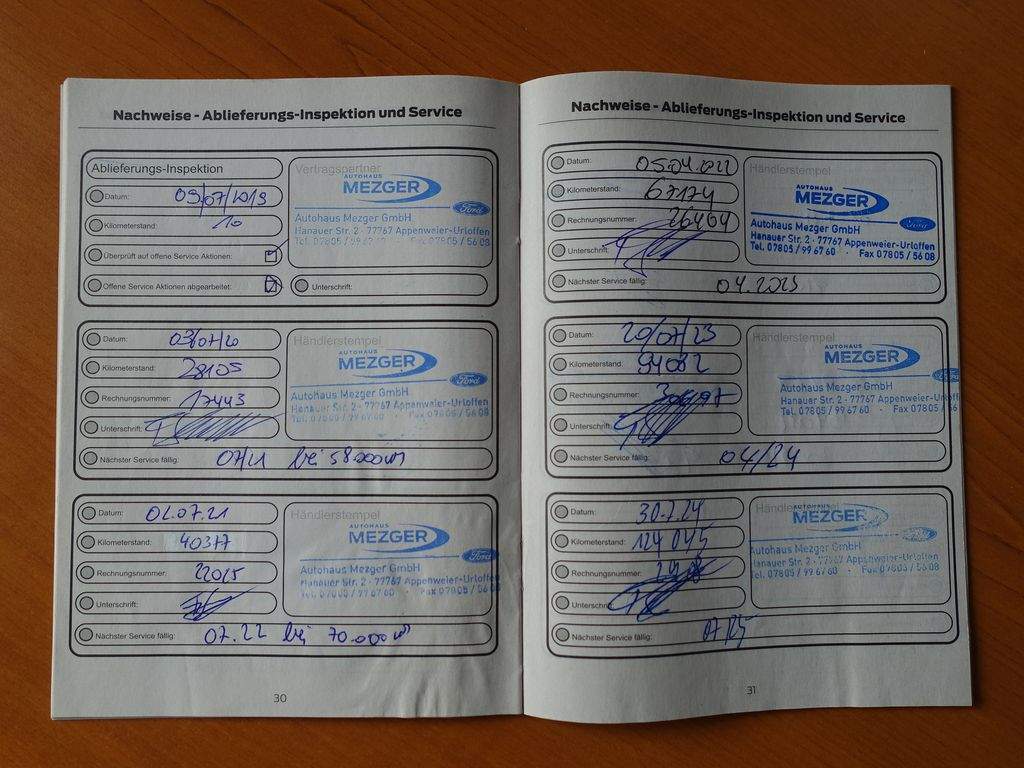 Nachweise - Ablieferungs-Inspektion und Service
Ablieferungs-Inspektion
Datum: 09/07/2019
Kilometerstand: 10
Überprüft auf offene Service Aktionen:
Offene Service Aktionen abgearbeitet:
Vertragspartner
AUTOHAUS
MEZGER
Ford
Autohaus Mezger GmbH
Hanauer Str. 2 · 77767 Appenweier-Urloffen
Tel. 07805 / 99 67 60 · Fax 07805 / 56 08
Unterschrift:
Datum: 03/07/20
Kilometerstand: 28105
Rechnungsnummer: 17443
Unterschrift:
Nächster Service fällig: 07/21 bei 58000 km
Händlerstempel
AUTOHAUS
MEZGER
Ford
Autohaus Mezger GmbH
Hanauer Str. 2 · 77767 Appenweier-Urloffen
Tel. 07805 / 99 67 60 · Fax 07805 / 56 08
Datum: 02.07.21
Kilometerstand: 40377
Rechnungsnummer: 22015
Unterschrift:
Nächster Service fällig: 07.22 bei 70.000 km
Händlerstempel
AUTOHAUS
MEZGER
Ford
Autohaus Mezger GmbH
Hanauer Str. 2 · 77767 Appenweier-Urloffen
Tel. 07805 / 99 67 60 · Fax 07805 / 56 08
30
Nachweise - Ablieferungs-Inspektion und Service
Datum: 05.04.2022
Kilometerstand: 67174
Rechnungsnummer: 26404
Unterschrift:
Nächster Service fällig: 04.2023
Händlerstempel
AUTOHAUS
MEZGER
Ford
Autohaus Mezger GmbH
Hanauer Str. 2 · 77767 Appenweier-Urloffen
Tel. 07805 / 99 67 60 · Fax 07805 / 56 08
Datum: 20/07/23
Kilometerstand: 94082
Rechnungsnummer:
Unterschrift:
Nächster Service fällig: 04/24
Händlerstempel
AUTOHAUS
MEZGER
Ford
Autohaus Mezger GmbH
Hanauer Str. 2 · 77767 Appenweier-Urloff
Tel. 07805 / 99 67 60 · Fax 07805 / 56
Datum: 30.7.24
Kilometerstand: 124045
Rechnungsnummer:
Unterschrift:
Nächster Service fällig: 07/25
Händlerstempel
AUTOHAUS
MEZGER
Autohaus Mezger GmbH
Hanauer Str. 2 · 77767 Appenweier-Urloffen
Tel. 07805 / 99 67 60 · Fax 07805 / 56 08
31